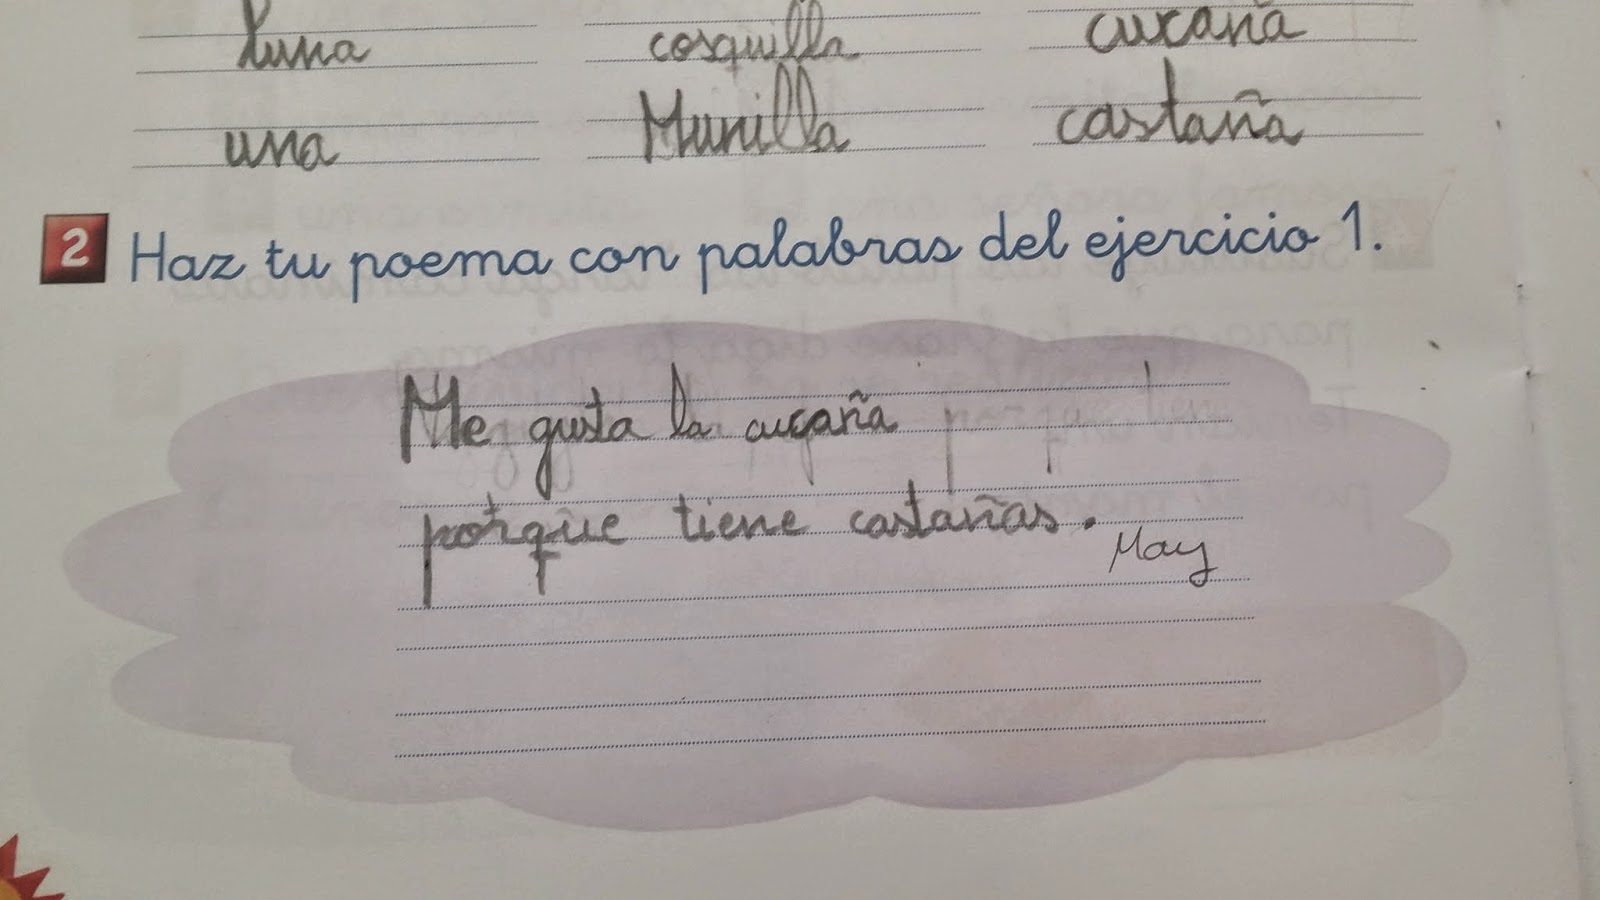 luna cosquilla cucaña
una Munilla castaña
2 Haz tu poema con palabras del ejercicio 1.
Me gusta la cucaña
porque tiene castañas.
May